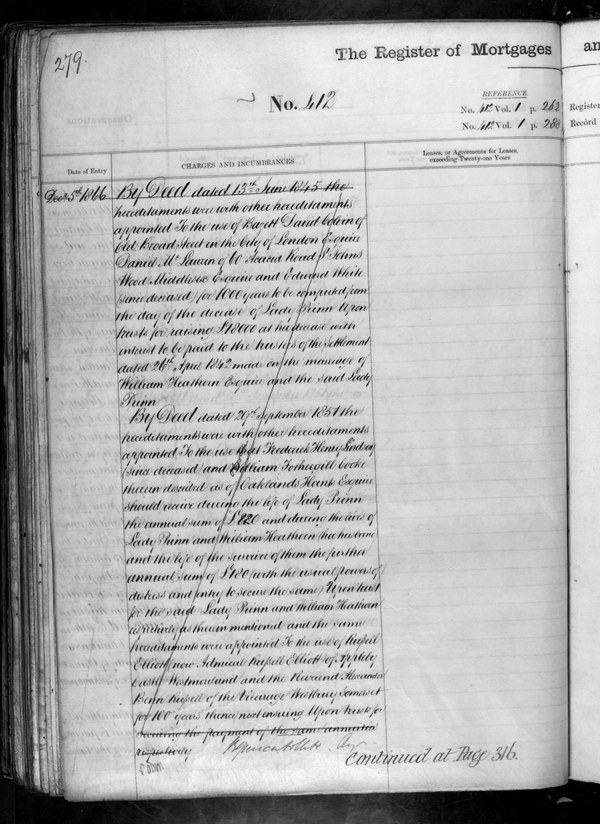 279.
The Register of Mortgages
an
No. 412
REFERENCE.
No. 412 Vol. 1 p. 262
No. 412 Vol. 1 p. 288
Register
Record
Date of Entry
CHARGES AND INCUMBRANCES
Leases, or Agreements for Leases,
exceeding Twenty-one Years
Decr 5th 1866
By Deed dated 13th June 1845 the
hereditaments were with other hereditaments
appointed To the use of Bazett David Colvin of
Old Broad Street in the City of London Esquire
Daniel Mc of 60 Acacia Road St Johns
Wood Middlesex Esquire and Edward White
(since deceased) for 1000 years to be computed from
the day of the decease of Lady Prinn Upon
trusts for raising £18000 at her decease with
interest to be paid to the trustees of the Settlement
dated 26th April 1842 made on the marriage of
William Heathorn Esquire and the said Lady
Prinn
By Deed dated 29th September 1851 the
hereditaments were with other hereditaments
appointed To the use that Frederick Henry Lindsay
(since deceased) and William Fothergill Cooke
therein described as of Oaklands Hants Esquire
should receive during the life of Lady Prinn
the annual sum of £820 and during the lives of
Lady Prinn and William Heathorn her husband
and the life of the survivor of them the further
annual sum of £180 (with the usual powers of
distress and entry to secure the same) Upon trust
for the said Lady Prinn and William Heathorn
respectively as therein mentioned and the same
hereditaments were appointed To the use of Russell
Elliott now Admiral Russell Elliott of Appleby
Castle Westmorland and the Reverend Alexander
Benn Russell of the Vicarage Westbury Somerset
for 100 years thence next ensuing Upon trust for
securing the payment of the same annuities
respectively
Continued at Page 316.